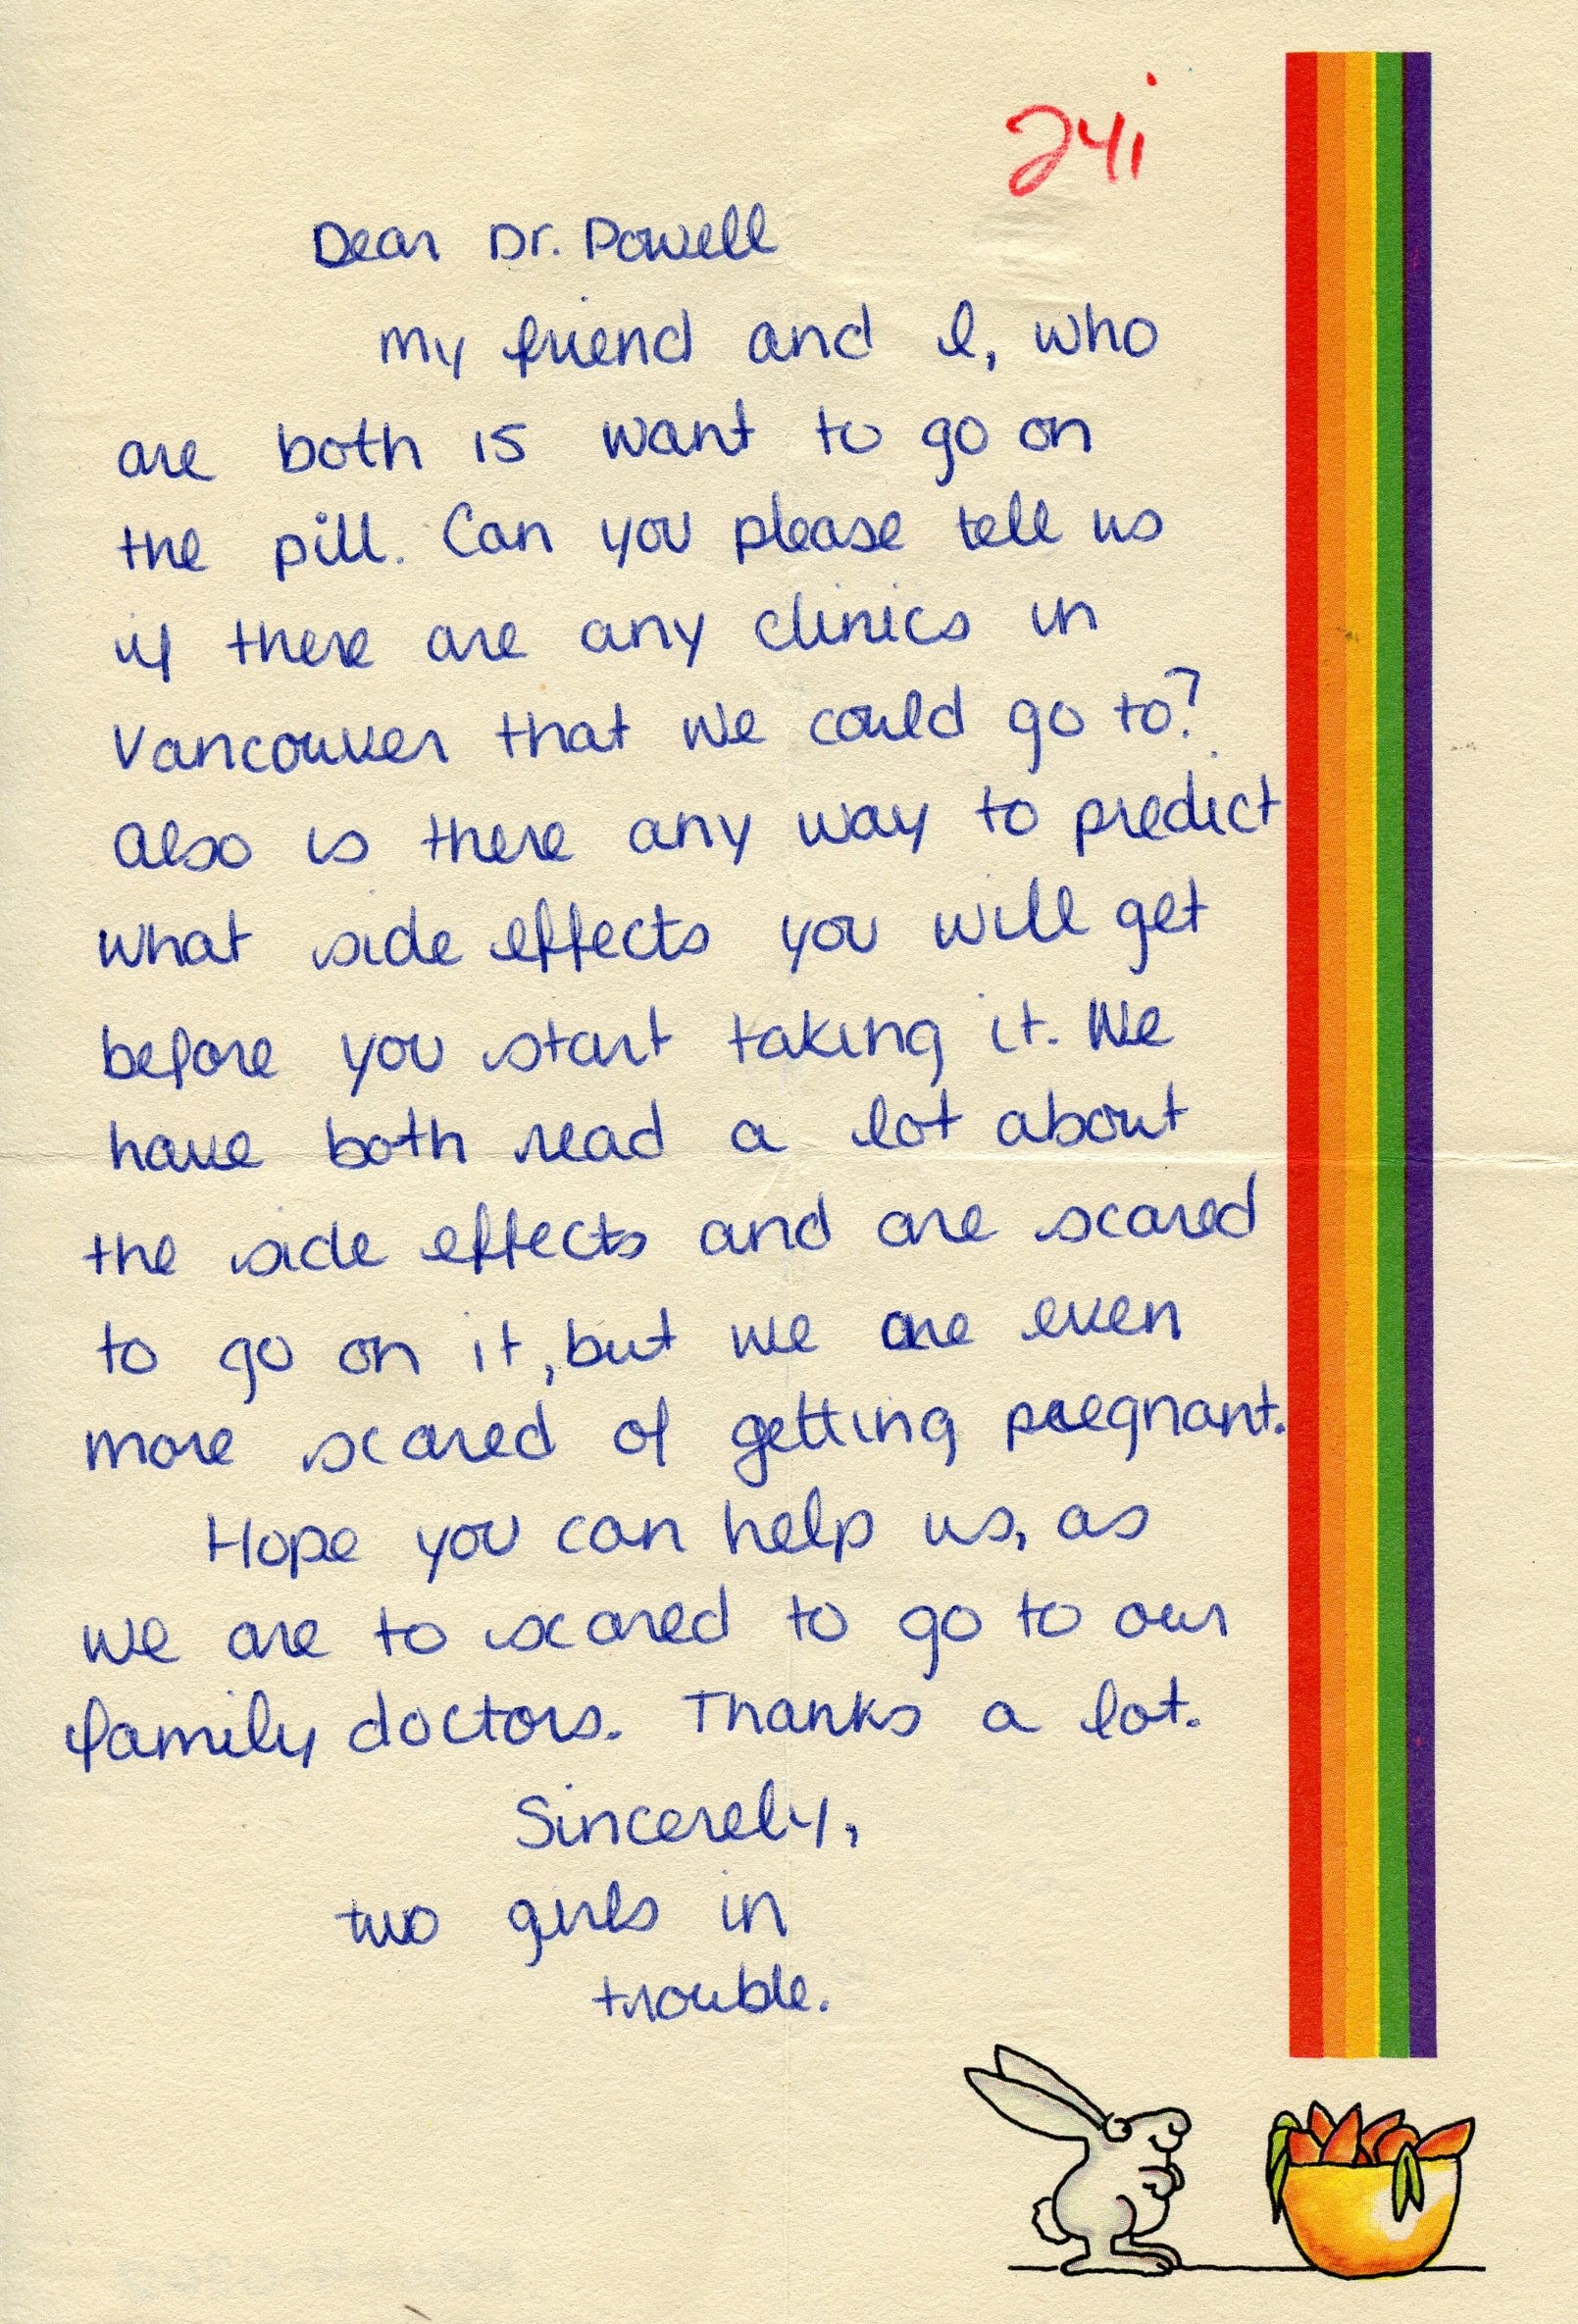 24i
Dear Dr. Powell
my friend and I, who
are both 15 want to go on
the pill. Can you please tell us
if there are any clinics in
Vancouver that we could go to?
Also is there any way to predict
what side effects you will get
before you start taking it. We
have both read a lot about
the side effects and are scared
to go on it, but we are even
more scared of getting pregnant.
Hope you can help us, as
we are to scared to go to our
family doctors. Thanks a lot.
Sincerely,
two girls in
trouble.